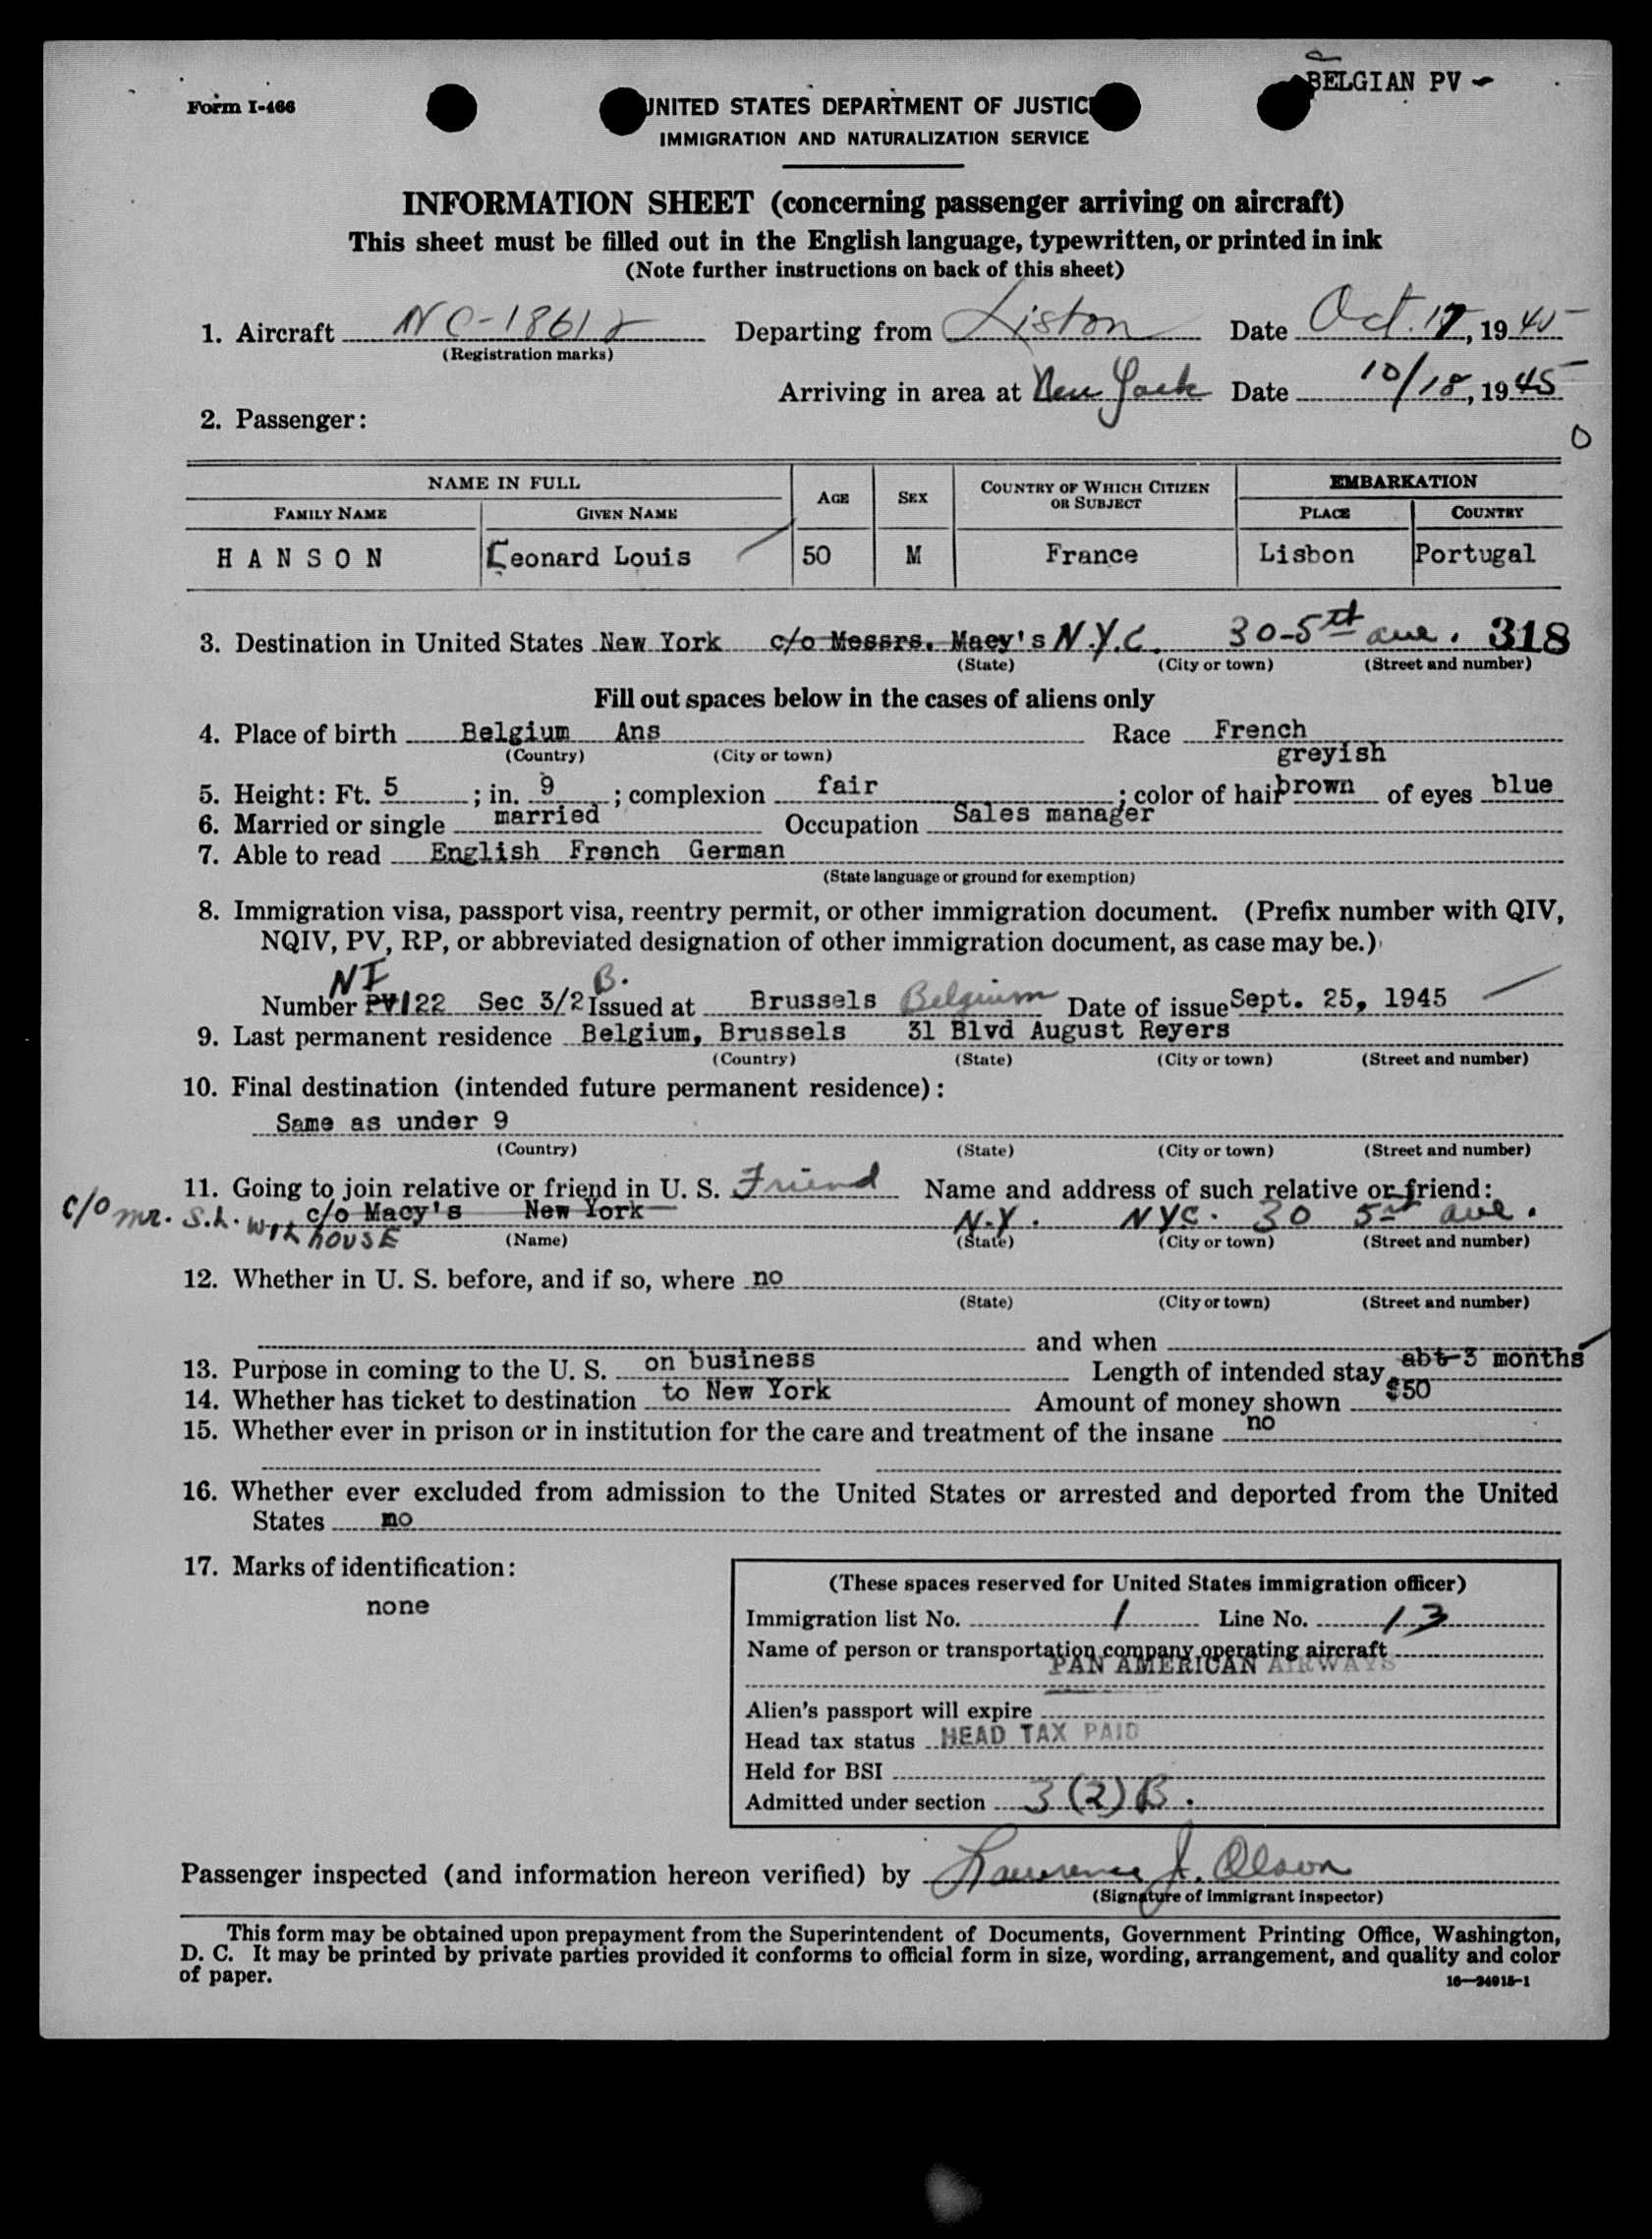 BELGIAN PV -
Form I-466
UNITED STATES DEPARTMENT OF JUSTICE
IMMIGRATION AND NATURALIZATION SERVICE
INFORMATION SHEET (concerning passenger arriving on aircraft)
This sheet must be filled out in the English language, typewritten, or printed in ink
(Note further instructions on back of this sheet)
1. Aircraft NC-18612 Departing from Lisbon Date Oct. 17, 1945
(Registration marks)
Arriving in area at New York Date 10/18, 1945
2. Passenger:
0
NAME IN FULL AGE SEX COUNTRY OF WHICH CITIZEN OR SUBJECT EMBARKATION
FAMILY NAME GIVEN NAME PLACE COUNTRY
HANSON Leonard Louis 50 M France Lisbon Portugal
3. Destination in United States New York c/o Messrs. Macy's N.Y.C. 30-5th ave. 318
(State) (City or town) (Street and number)
Fill out spaces below in the cases of aliens only
4. Place of birth Belgium Ans Race French
(Country) (City or town) greyish
5. Height: Ft. 5; in. 9; complexion fair; color of hair brown of eyes blue
6. Married or single married Occupation Sales manager
7. Able to read English French German
(State language or ground for exemption)
8. Immigration visa, passport visa, reentry permit, or other immigration document. (Prefix number with QIV,
NQIV, PV, RP, or abbreviated designation of other immigration document, as case may be.)
NI B.
Number PV122 Sec 3/2 Issued at Brussels Belgium Date of issue Sept. 25, 1945
9. Last permanent residence Belgium, Brussels 31 Blvd August Reyers
(Country) (State) (City or town) (Street and number)
10. Final destination (intended future permanent residence):
Same as under 9
(Country) (State) (City or town) (Street and number)
11. Going to join relative or friend in U. S. Friend Name and address of such relative or friend:
c/o mr. S.L. c/o Macy's New York N.Y. NYC. 30 5th ave.
(Name) (State) (City or town) (Street and number)
12. Whether in U. S. before, and if so, where no
(State) (City or town) (Street and number)
and when
13. Purpose in coming to the U. S. on business Length of intended stay abt 3 months
14. Whether has ticket to destination to New York Amount of money shown $50
15. Whether ever in prison or in institution for the care and treatment of the insane no
16. Whether ever excluded from admission to the United States or arrested and deported from the United
States no
17. Marks of identification:
none
(These spaces reserved for United States immigration officer)
Immigration list No. 1 Line No. 13
Name of person or transportation company operating aircraft
PAN AMERICAN AIRWAYS
Alien's passport will expire
Head tax status HEAD TAX PAID
Held for BSI
Admitted under section 3(2)B.
Passenger inspected (and information hereon verified) by Lawrence J. Olson
(Signature of immigrant inspector)
This form may be obtained upon prepayment from the Superintendent of Documents, Government Printing Office, Washington,
D. C. It may be printed by private parties provided it conforms to official form in size, wording, arrangement, and quality and color
of paper.
16—24915-1